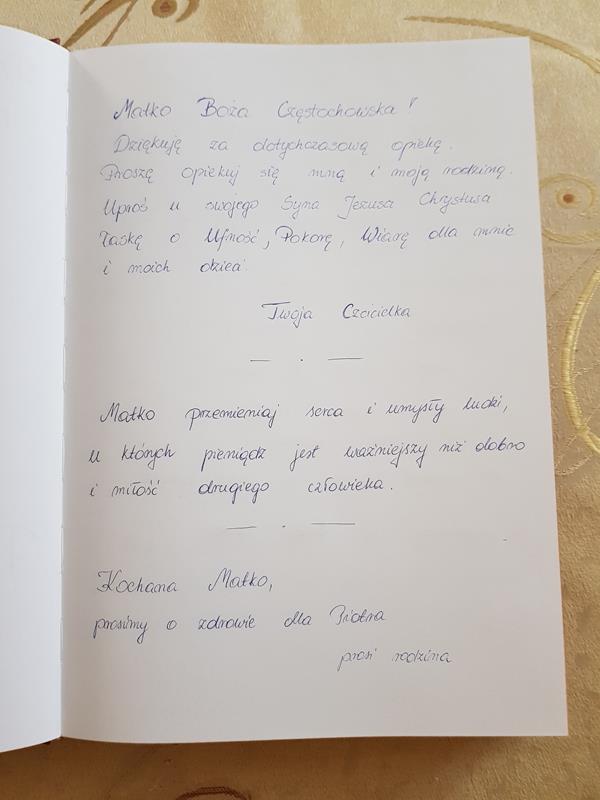 Matko Boża Częstochowska!
Dziękuję za dotychczasową opiekę.
Proszę opiekuj się mną i moją rodziną.
Uproś u swojego Syna Jezusa Chrystusa
łaskę o Ufność, Pokorę, Wiarę dla mnie
i moich dzieci.
Twoja Czcicielka
— . —
Matko przemieniaj serca i umysły ludzi,
u których pieniądz jest ważniejszy niż dobro
i miłość drugiego człowieka.
— . —
Kochana Matko,
prosimy o zdrowie dla Piotra
prosi rodzina